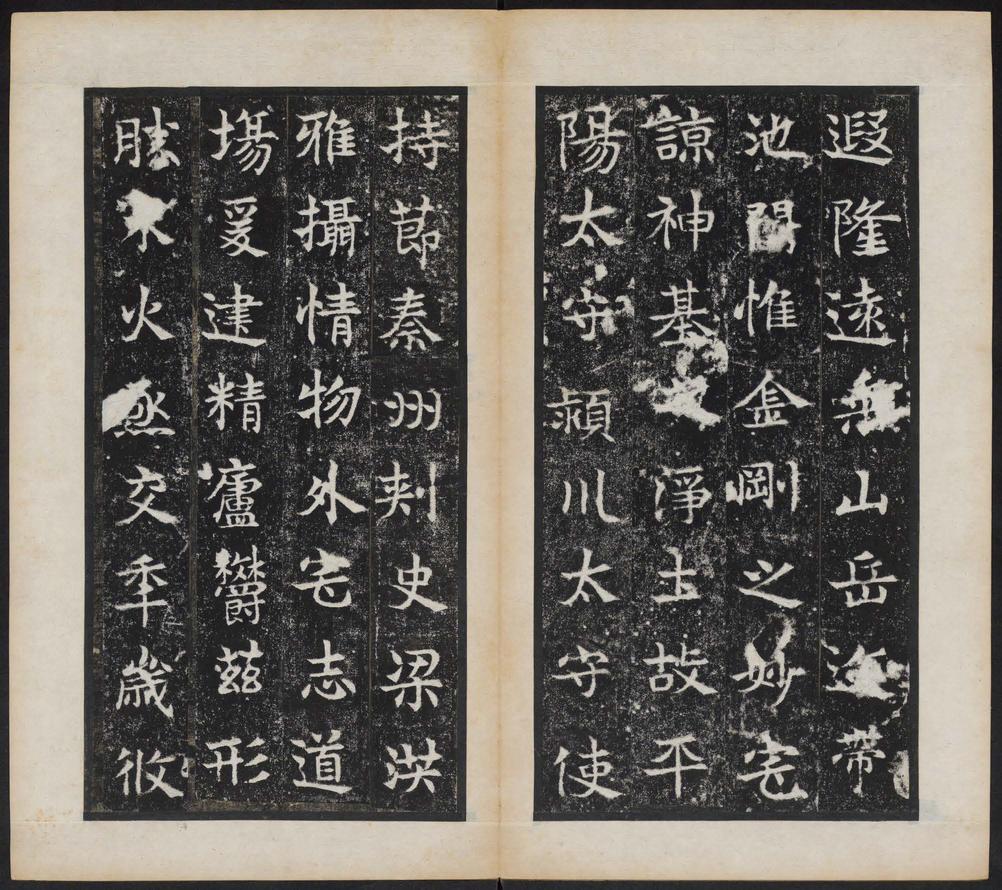 遐隆遠山岳帶
池閒惟金剛之妙宅
諒神基淨土故平
陽太守潁川太守使
持節秦州刺史梁洪
雅攝情物外宅志道
場爰建精廬欝茲形
勝火烝交年歲攸